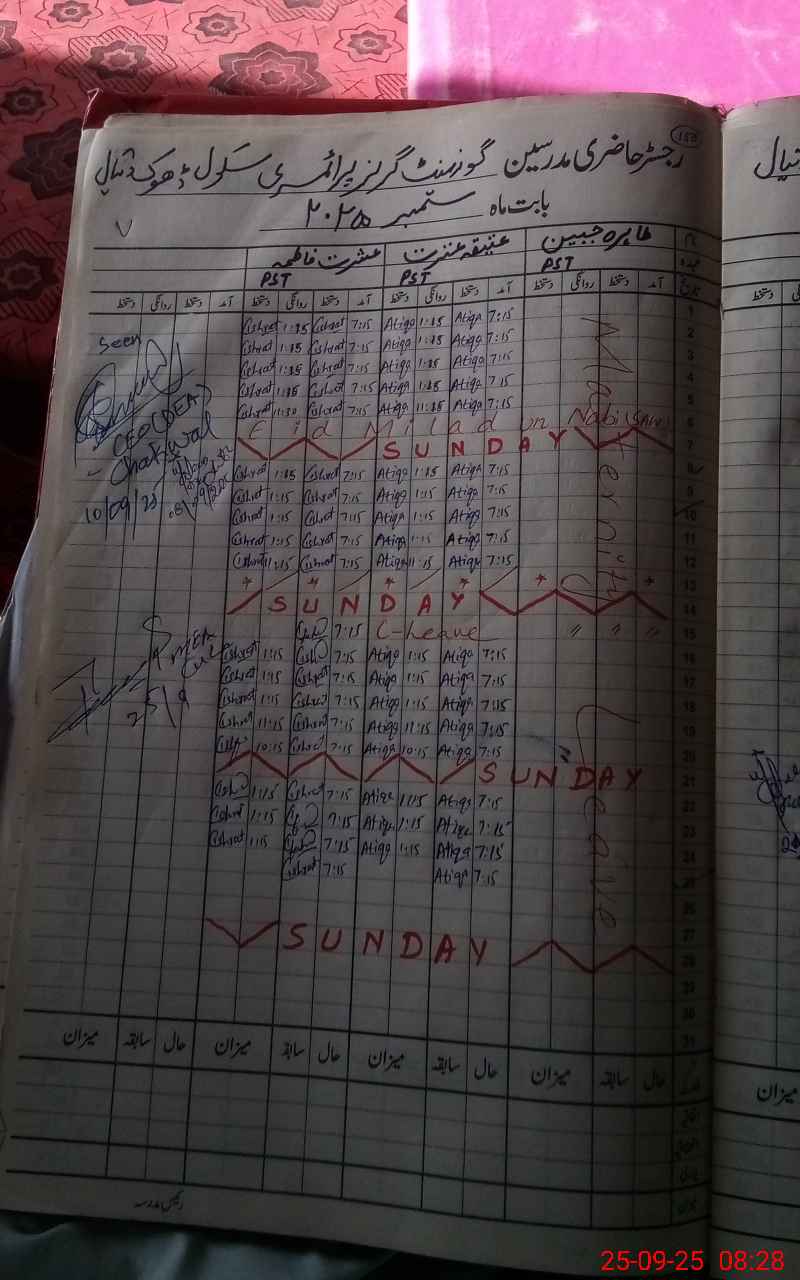 153
رجسٹر حاضری مدرسین گورنمنٹ گرلز پرائمری سکول ڈھوک دتیال
بابت ماہ ستمبر ۲۰۲۵
طاہرہ جبین عتیقہ عنزت عشرت فاطمہ
PST PST PST
تاریخ آمد دستخط روانگی دستخط آمد دستخط روانگی دستخط آمد دستخط روانگی دستخط دستخط روانگی دستخط
1 7:15 Atiqa 1:15 Atiqa 7:15 Cishrat 1:15 Cishrat
2 7:15 Atiqa 1:15 Atiqa 7:15 Cishrat 1:15 Cishrat
3 7:15 Atiqa 1:15 Atiqa 7:15 Cishrat 1:15 Cishrat
4 7:15 Atiqa 1:15 Atiqa 7:15 Cishrat 1:15 Cishrat
5 7:15 Atiqa 11:15 Atiqa 7:15 Cishrat 11:30 Cishrat
6 Eid Milad un Nabi (SAW)
7 SUNDAY
8 7:15 Atiqa 1:15 Atiqa 7:15 Cishrat 1:15 Cishrat
9 7:15 Atiqa 1:15 Atiqa 7:15 Cishrat 1:15 Cishrat
10 7:15 Atiqa 1:15 Atiqa 7:15 Cishrat 1:15 Cishrat
11 7:15 Atiqa 1:15 Atiqa 7:15 Cishrat 1:15 Cishrat
12 7:15 Atiqa 11:15 Atiqa 7:15 Cishrat 11:15 Cishrat
13
14 SUNDAY
15 " " " C-Leave 7:15
16 7:15 Atiqa 1:15 Atiqa 7:15 1:15 Cishrat
17 7:15 Atiqa 1:15 Atiqa 7:15 Cishrat 1:15 Cishrat
18 7:15 Atiqa 1:15 Atiqa 7:15 Cishrat 1:15 Cishrat
19 7:15 Atiqa 11:15 Atiqa 7:15 Cishrat 11:15 Cishrat
20 7:15 Atiqa 10:15 Atiqa 7:15 Cishrat 10:15
21 SUNDAY
22 7:15 Atiqa 1:15 Atiqa 7:15 Cishrat 1:15
23 7:15 Atiqa 1:15 Atiqa 7:15 1:15 Cishrat
24 7:15 Atiqa 1:15 Atiqa 7:15 1:15 Cishrat
25 7:15 Atiqa 7:15 Cishrat
26
27
28 SUNDAY
29
30
31
Maternity Leave
Seen
CEO (DEA)
Chakwal
10/09/25
25/9
حال سابقہ میزان حال سابقہ میزان حال سابقہ میزان حال سابقہ میزان
رئیس مدرسہ
میزان
25-09-25 08:28